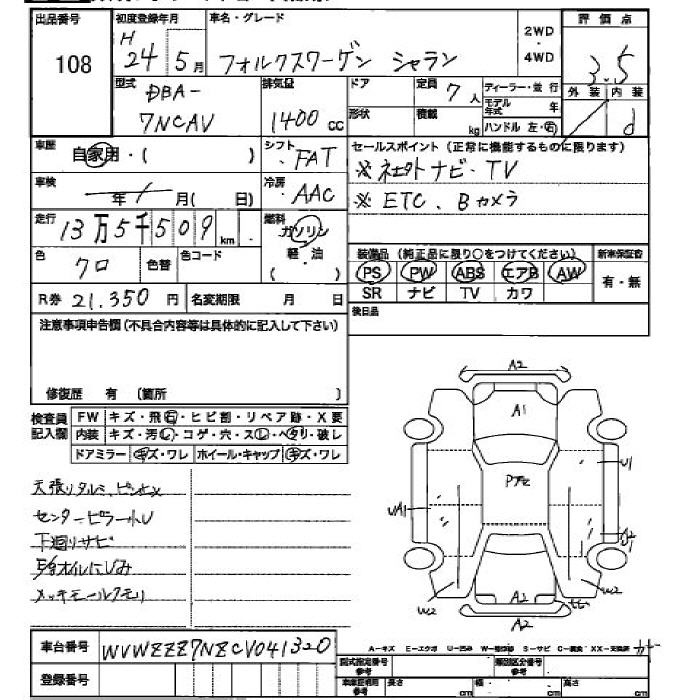 出品番号 初度登録年月 車名・グレード 2WD・4WD 評価点
108 H 24 5月 フォルクスワーゲン シャラン 3.5
型式 DBA- 7NCAV 排気量 1400 cc ドア 定員 7人 ディーラー・並行 外装 内装
形状 積載 kg モデル年式 年 ハンドル 左・右 d
車歴 自家用・( ) シフト FAT セールスポイント(正常に機能するものに限ります)
※社外ナビ・TV
車検 年 月( 日) 冷房 AAC ※ETC、Bカメラ
走行 13万5千509 km 燃料 ガソリン 軽・油 ( )
色 クロ 色替 色コード 装備品(純正品に限り○をつけてください) 新車保証書
PS PW ABS エアB AW 有・無
SR ナビ TV カワ
R券 21,350円 名変期限 月 日 後日品
注意事項申告欄(不具合内容等は具体的に記入して下さい)
修復歴 有 (箇所 )
検査員記入欄 FW キズ・飛石・ヒビ割・リペア跡・X要
内装 キズ・汚レ・コゲ・穴・スレ・ヘタリ・破レ
ドアミラー キズ・ワレ ホイール・キャップ キズ・ワレ
天張りタルミ、ピン止メ
センターピラー小U
下廻りサビ
メッキモールクモリ
A2
A1
U1
UA1
W2
W2
A2
A2
車台番号 WVWZZZ7NZCV041320
A-キズ E-エクボ U-凹み S-サビ
登録番号 型式指定番号 類別区分番号
長さ cm 幅 cm 高さ cm